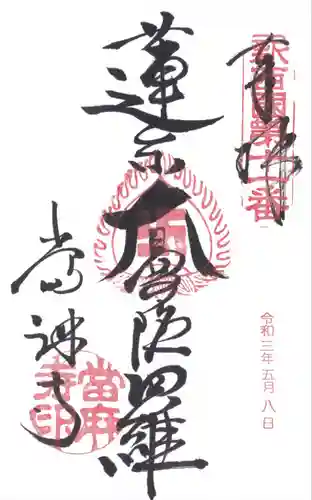 奉拝
新西国第十一番
蓮糸大曼陀羅
當麻寺
當麻寺印
令和三年五月八日